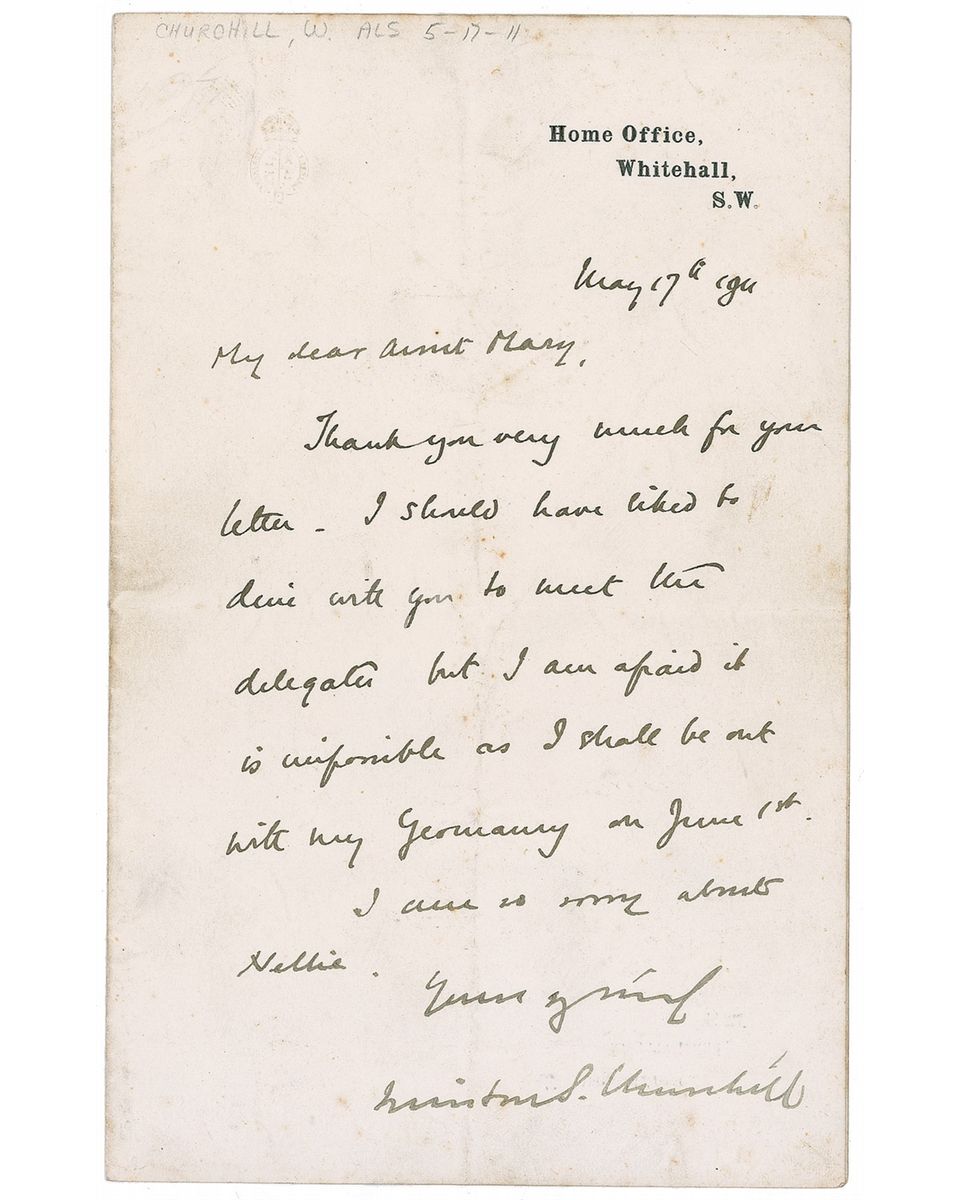 CHURCHILL, W. ALS 5-17-11
Home Office,
Whitehall,
S.W.
May 17th 1911
My dear Aunt Mary,
Thank you very much for your
letter - I should have liked to
dine with you to meet the
delegates but I am afraid it
is impossible as I shall be out
with my Yeomanry on June 1st.
I am so sorry about
Nellie.
Yours
Winston S. Churchill